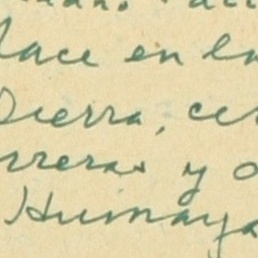 lace en la
Sierra, cer
rreras y
Humaya